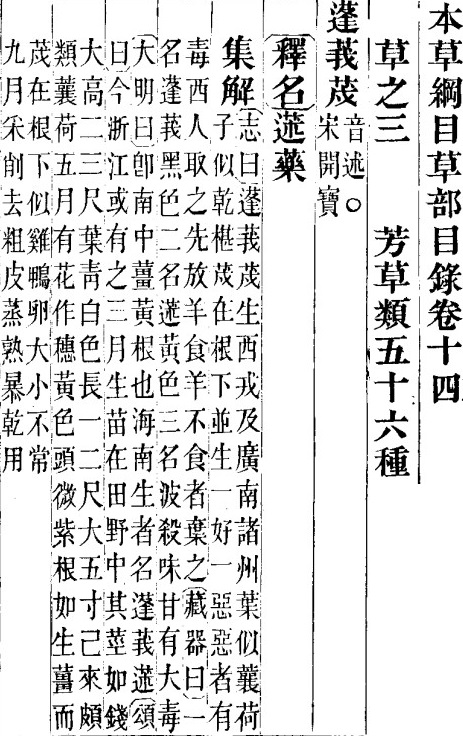 本草綱目草部目錄卷十四
草之三　芳草類五十六種
蓬莪茂 音述○
宋開寶
釋名 蒁藥
集解 志曰蓬莪茂生西戎及廣南諸州葉似蘘荷
子似乾椹茂在根下並生一好一惡惡者有
毒西人取之先放羊食羊不食者棄之藏器曰一
名蓬莪黑色二名蒁黃色三名波殺味甘有大毒
大明曰卽南中薑黃根也海南生者名蓬莪蒁頌
曰今浙江或有之三月生苗在田野中其莖如錢
大高二三尺葉青白色長一二尺大五寸己來頗
類蘘荷五月有花作穗黃色頭微紫根如生薑而
茂在根下似雞鴨卵大小不常
九月采削去粗皮蒸熟暴乾用